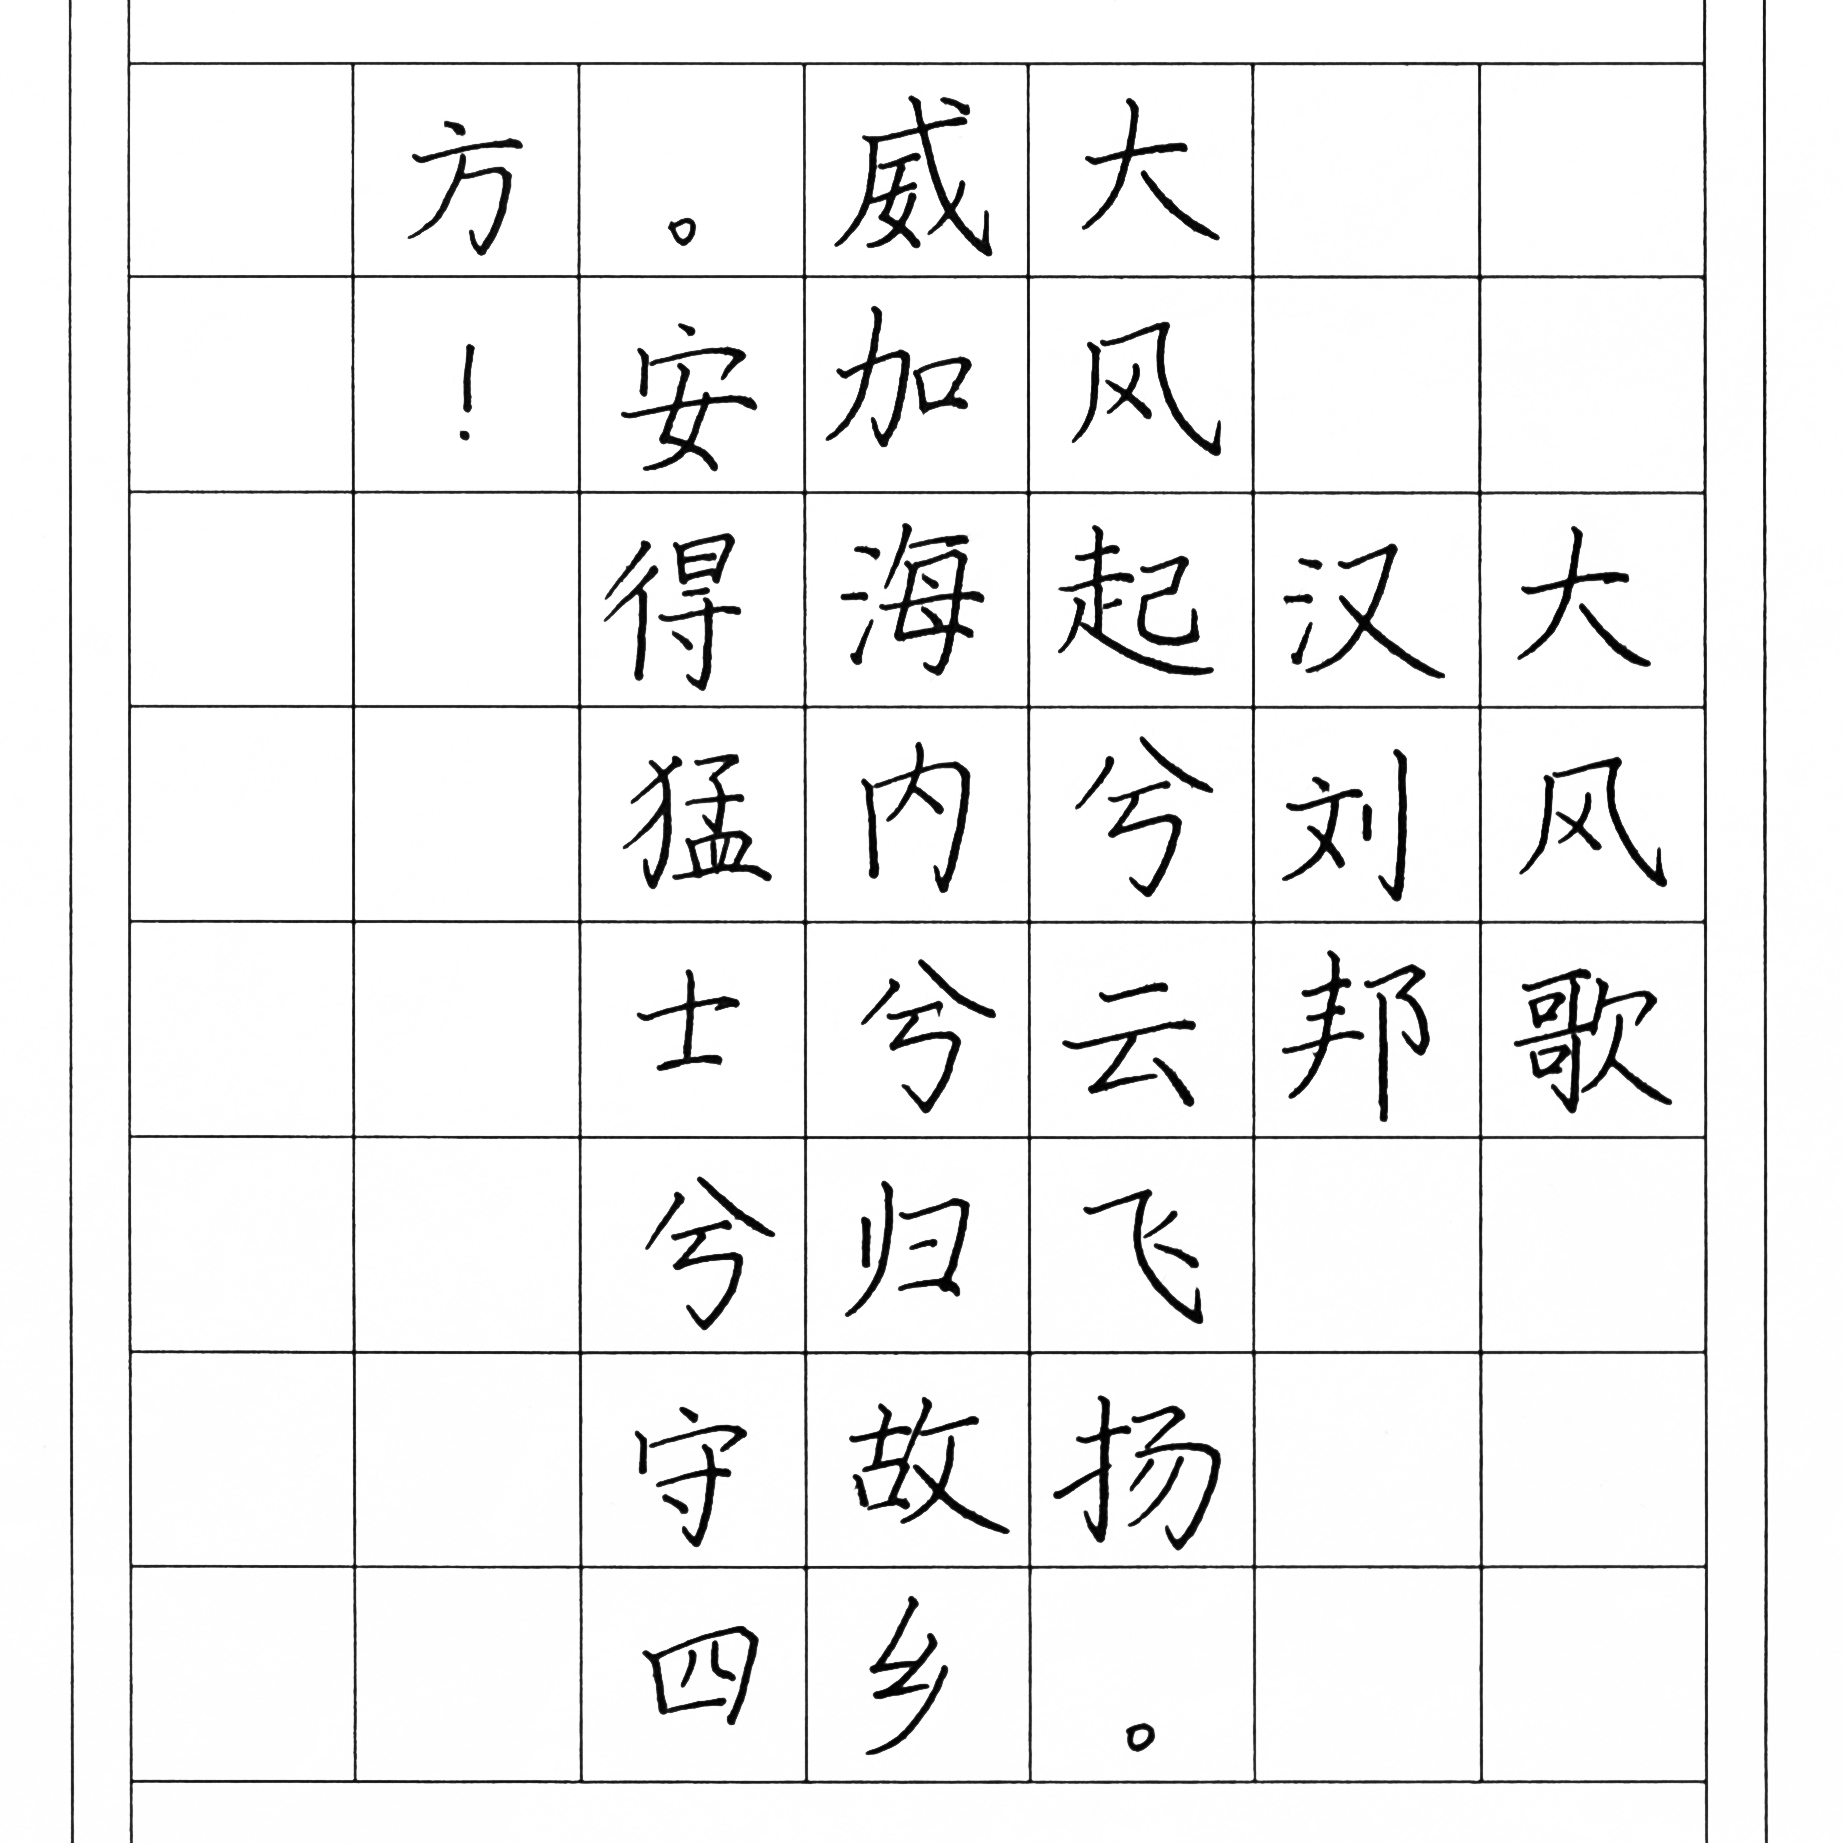 大风歌
汉刘邦
大风起兮云飞扬。
威加海内兮归故乡
。安得猛士兮守四
方！